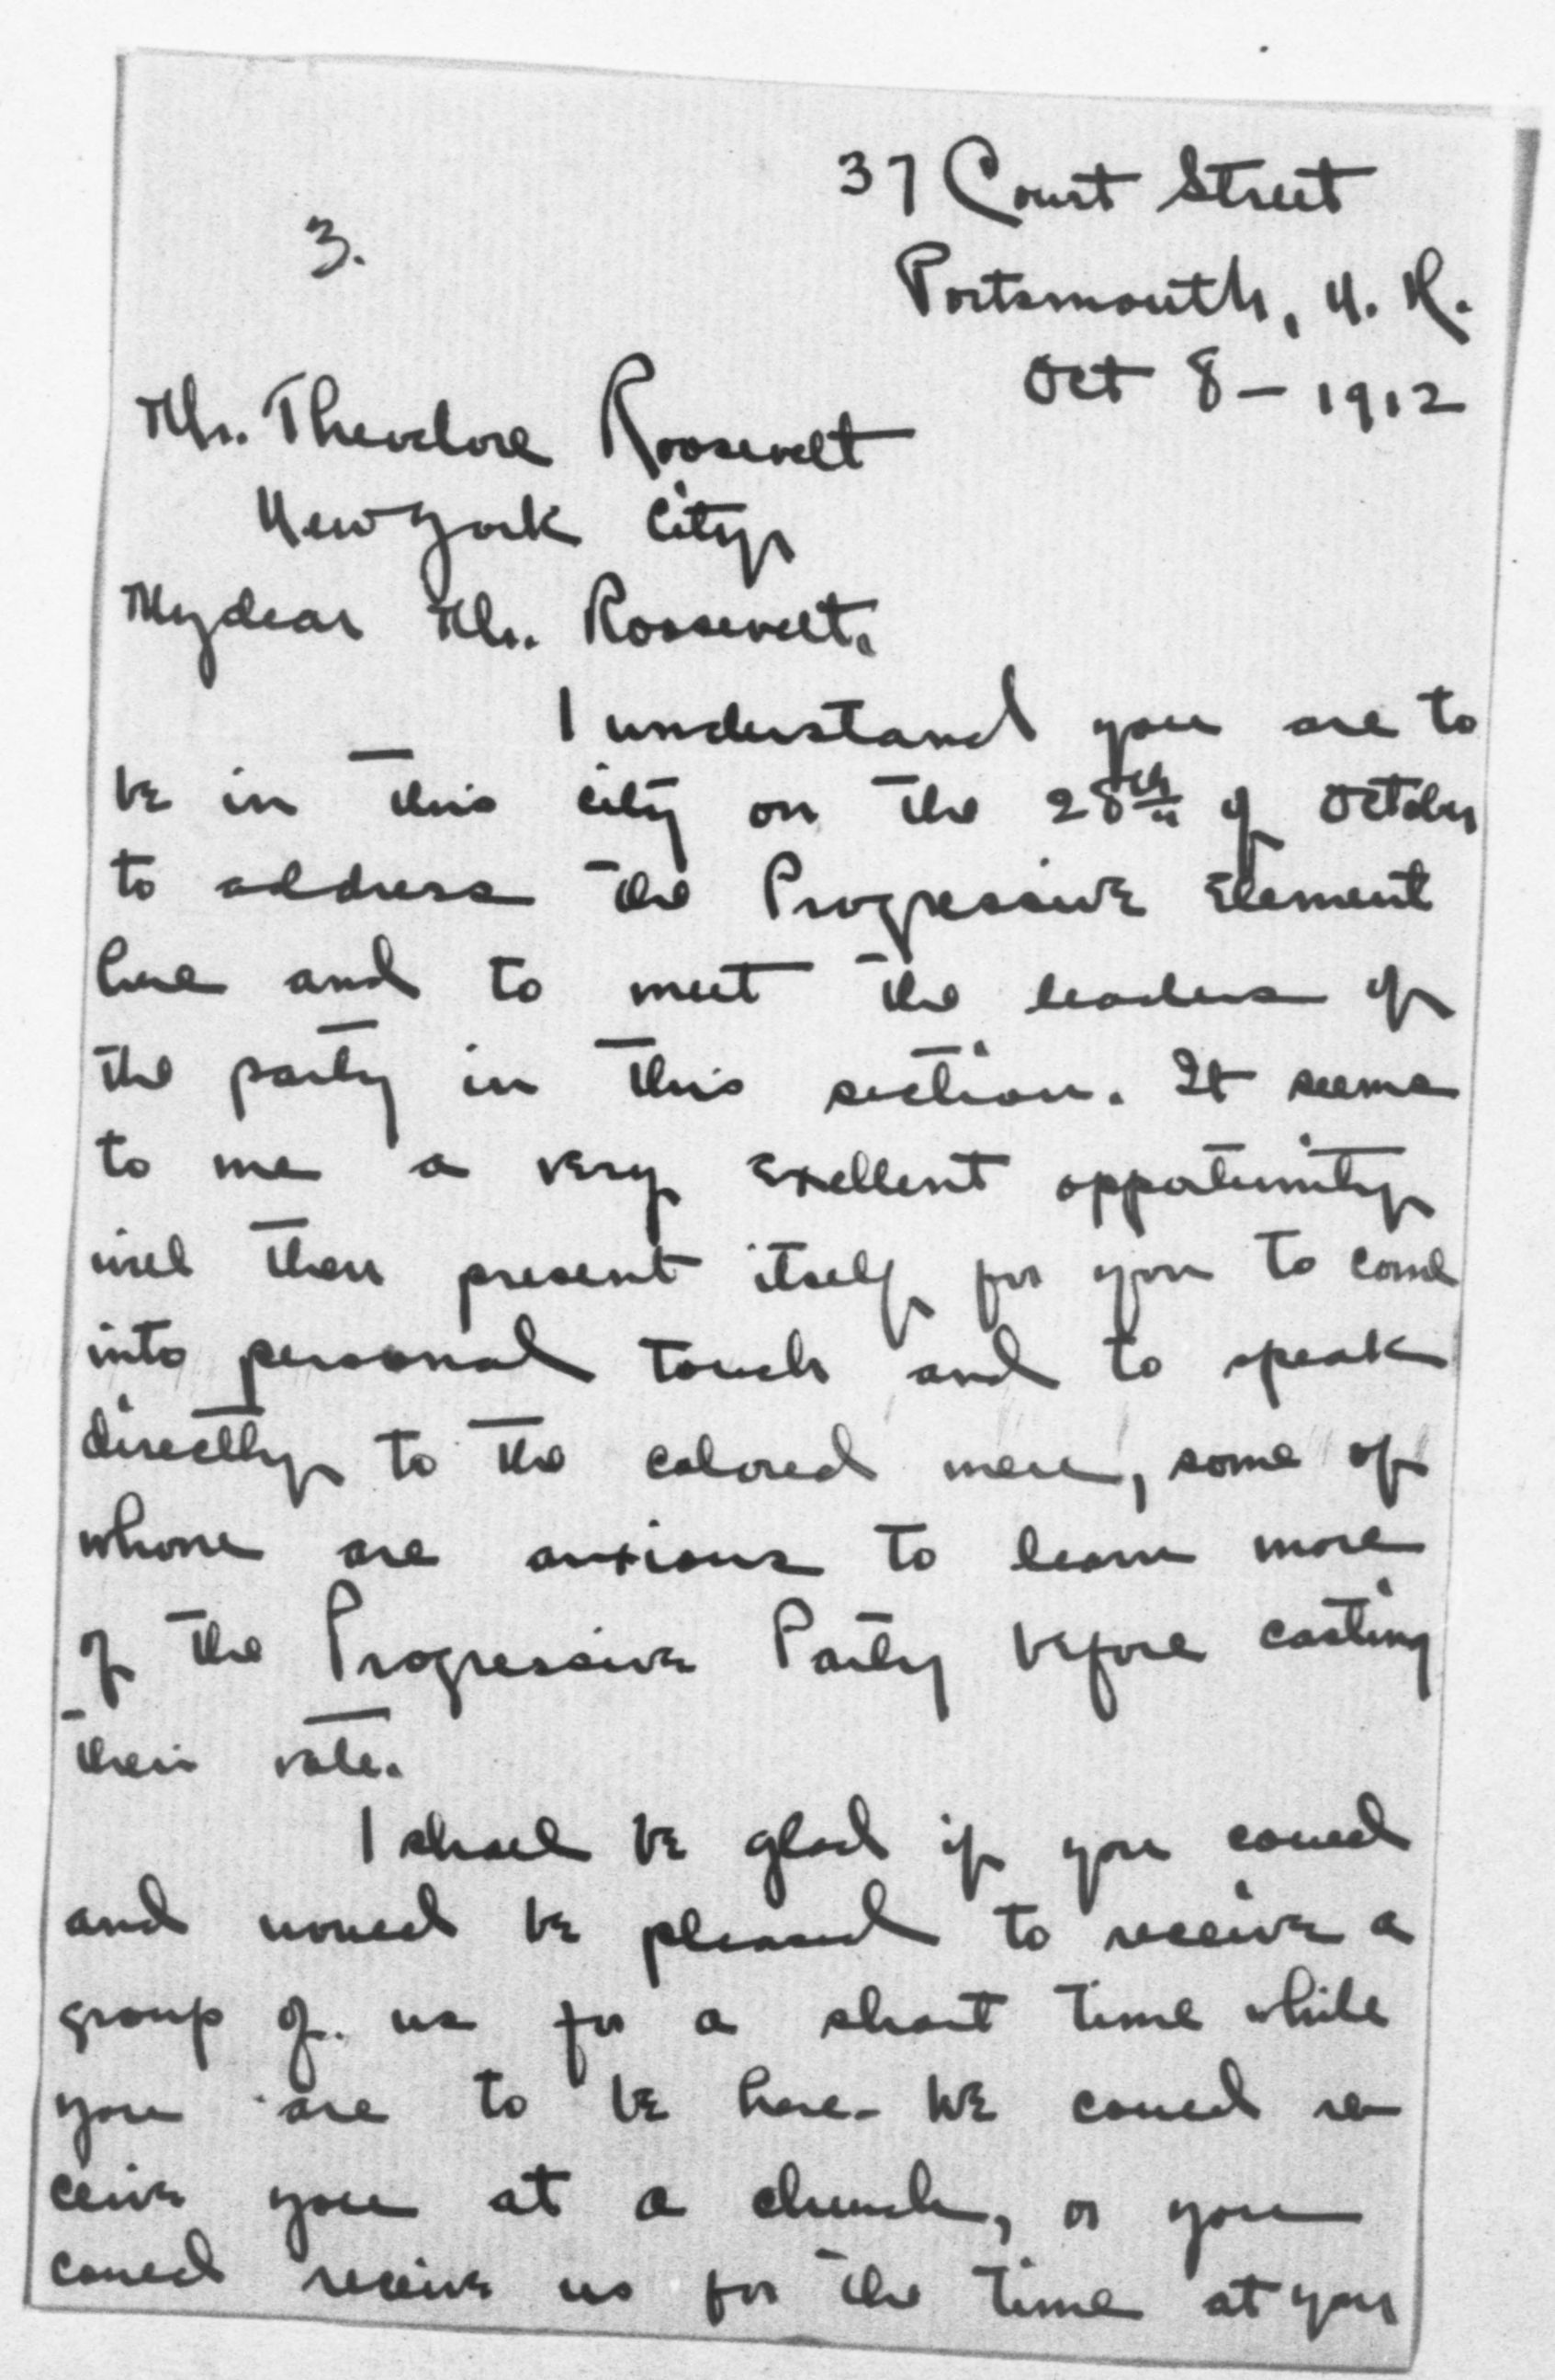 37 Court Street
3.
Portsmouth, N. H.
Oct 8 - 1912
Mr. Theodore Roosevelt
New York City
My dear Mr. Roosevelt,
I understand you are to
be in this city on the 28th of October
to address the Progressive Element
here and to meet the leaders of
the party in this section. It seems
to me a very exellent opportunity
will then present itself for you to come
into personal touch and to speak
directly to the colored men, some of
whom are anxious to learn more
of the Progressive Party before casting
their vote.
I shall be glad if you could
and would be pleased to receive a
group of us for a short time while
you are to be here - We could re-
ceive you at a church, or you
could receive us for the time at your